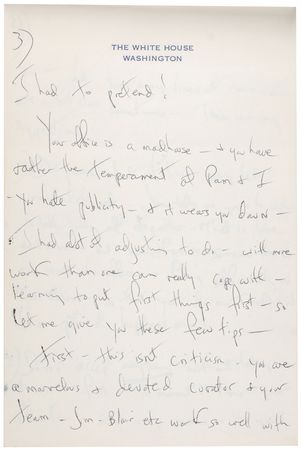 3)
THE WHITE HOUSE
WASHINGTON
I had to pretend!
Your office is a madhouse — + you have
rather the temperament of Pam + I
- You hate publicity - + it wears you down -
I had a lot of adjusting to do - with more
work than one can really cope with -
Learning to put first things first - so
let me give you these few tips -
First - this isnt criticism - you are
a marvelous + devoted curator + your
team - Jim - Blair etc work so well with